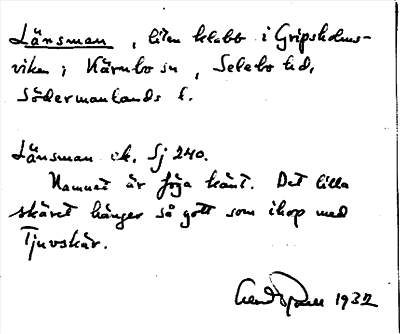 Länsman, liten klabb i Gripsholms-
viken i Kärnbo sn, Selebo hd,
Södermanlands l.
Länsman ek. Sj 240.
Namnet är föga känt. Det lilla
skäret hänger så gott som ihop med
Tjuvskär.
1932